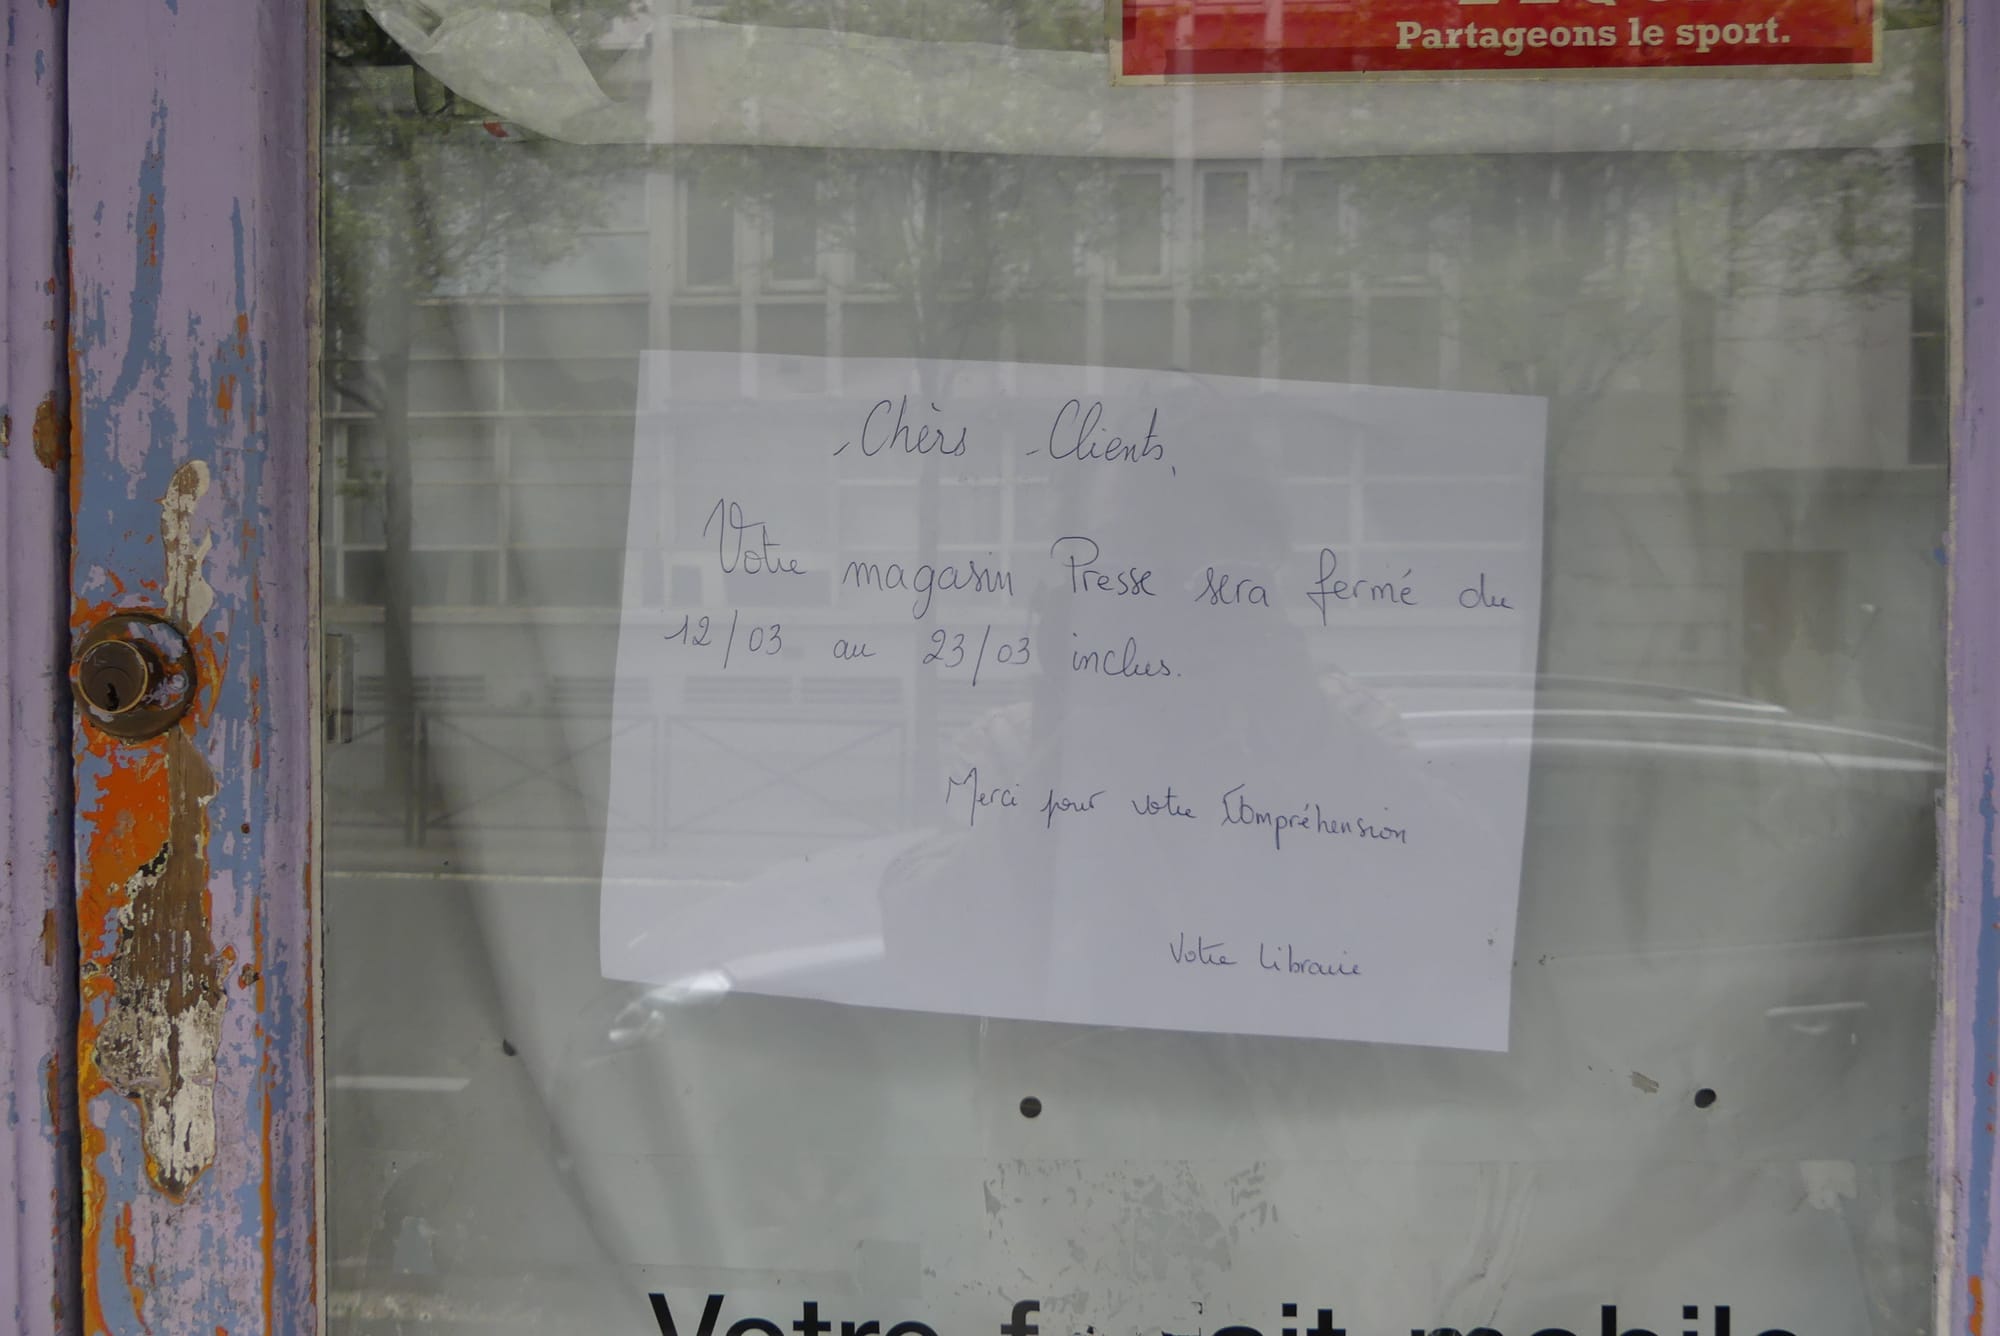 Partageons le sport.
Chèrs Clients,
Votre magasin Presse sera fermé du
12/03 au 23/03 inclus.
Merci pour votre Compréhension
Votre Librairie
Votre forfait mobile